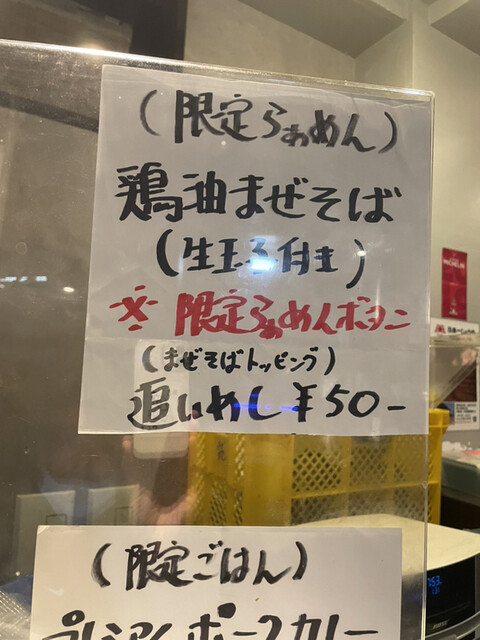 （限定らぁめん）
鶏油まぜそば
（生玉子付き）
※ 限定らぁめんボタン
（まぜそばトッピング）
追いめし ¥50-
（限定ごはん）
プレミアムポークカレー
MICHELIN